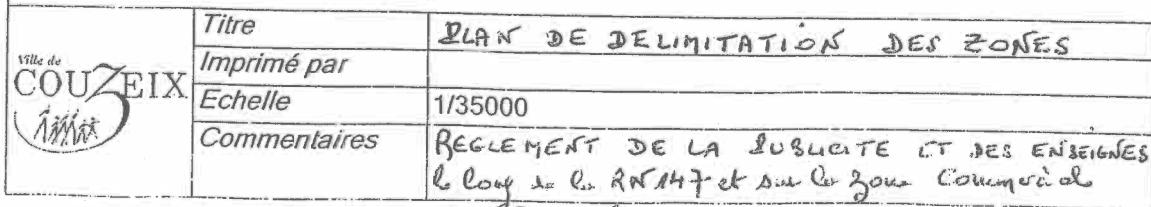 Ville de
COUZEIX
Titre PLAN DE DELIMITATION DES ZONES
Imprimé par
Echelle 1/35000
Commentaires REGLEMENT DE LA PUBLICITE ET DES ENSEIGNES
le long de la RN147 et sur la zone Commercial